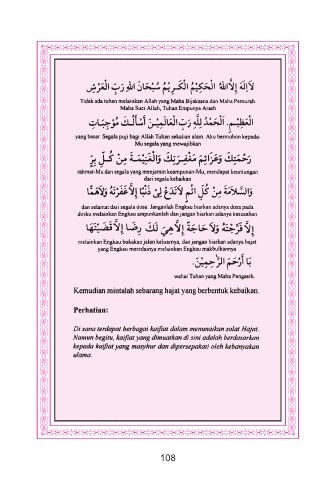 لاَإِلَهَ إِلاَّ اللهُ الْحَكِيْمُ الْكَرِيْمُ سُبْحَانَ اللهِ رَبِّ الْعَرْشِ
Tidak ada tuhan melainkan Allah yang Maha Bijaksana dan Maha Pemurah.
Maha Suci Allah, Tuhan Empunya Arash
الْعَظِيْمِ. اَلْحَمْدُ لِلَّهِ رَبِّ الْعَالَمِيْنَ أَسْأَلُكَ مُوْجِبَاتِ
yang besar. Segala puji bagi Allah Tuhan sekalian alam. Aku bermohon kepada-
Mu segala yang mewajibkan
رَحْمَتِكَ وَعَزَائِمَ مَغْفِرَتِكَ وَالْغَنِيْمَةَ مِنْ كُلِّ بِرٍّ
rahmat-Mu dan segala yang menjamin keampunan-Mu, mendapat keuntungan
dari segala kebaikan
وَالسَّلاَمَةَ مِنْ كُلِّ اثْمٍ لاَتَدَعْ لِيْ ذَنْبًا إِلاَّ غَفَرْتَهُ وَلاَهَمًّا
dan selamat dari segala dosa. Janganlah Engkau biarkan adanya dosa pada
diriku melainkan Engkau ampunkanlah dan jangan biarkan adanya kesusahan
إِلاَّ فَرَّجْتَهُ وَلاَ حَاجَةً إِلاَّ هِيَ لَكَ رِضًا إِلاَّ قَضَيْتَهَا
melainkan Engkau bukakan jalan keluarnya, dan jangan biarkan adanya hajat
yang Engkau meredainya melainkan Engkau makbulkannya
يَا أَرْحَمَ الرَّاحِمِيْنَ.
wahai Tuhan yang Maha Pengasih.
Kemudian mintalah sebarang hajat yang berbentuk kebaikan.
Perhatian:
Di sana terdapat berbagai kaifiat dalam menunaikan solat Hajat.
Namun begitu, kaifiat yang dimuatkan di sini adalah berdasarkan
kepada kaifiat yang masyhur dan dipersepakati oleh kebanyakan
ulama.
108